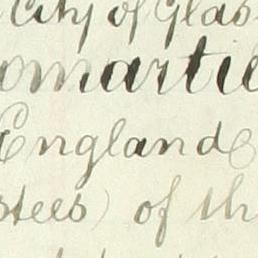 City of Glas
omartie
England
stees) of th